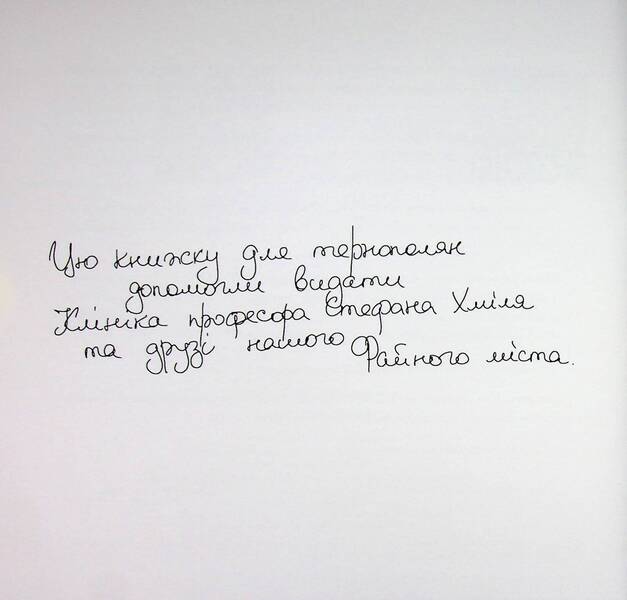 Цю книжку для тернополян
допомогли видати
Клініка професора Стефана Хміля
та друзі нашого Файного міста.